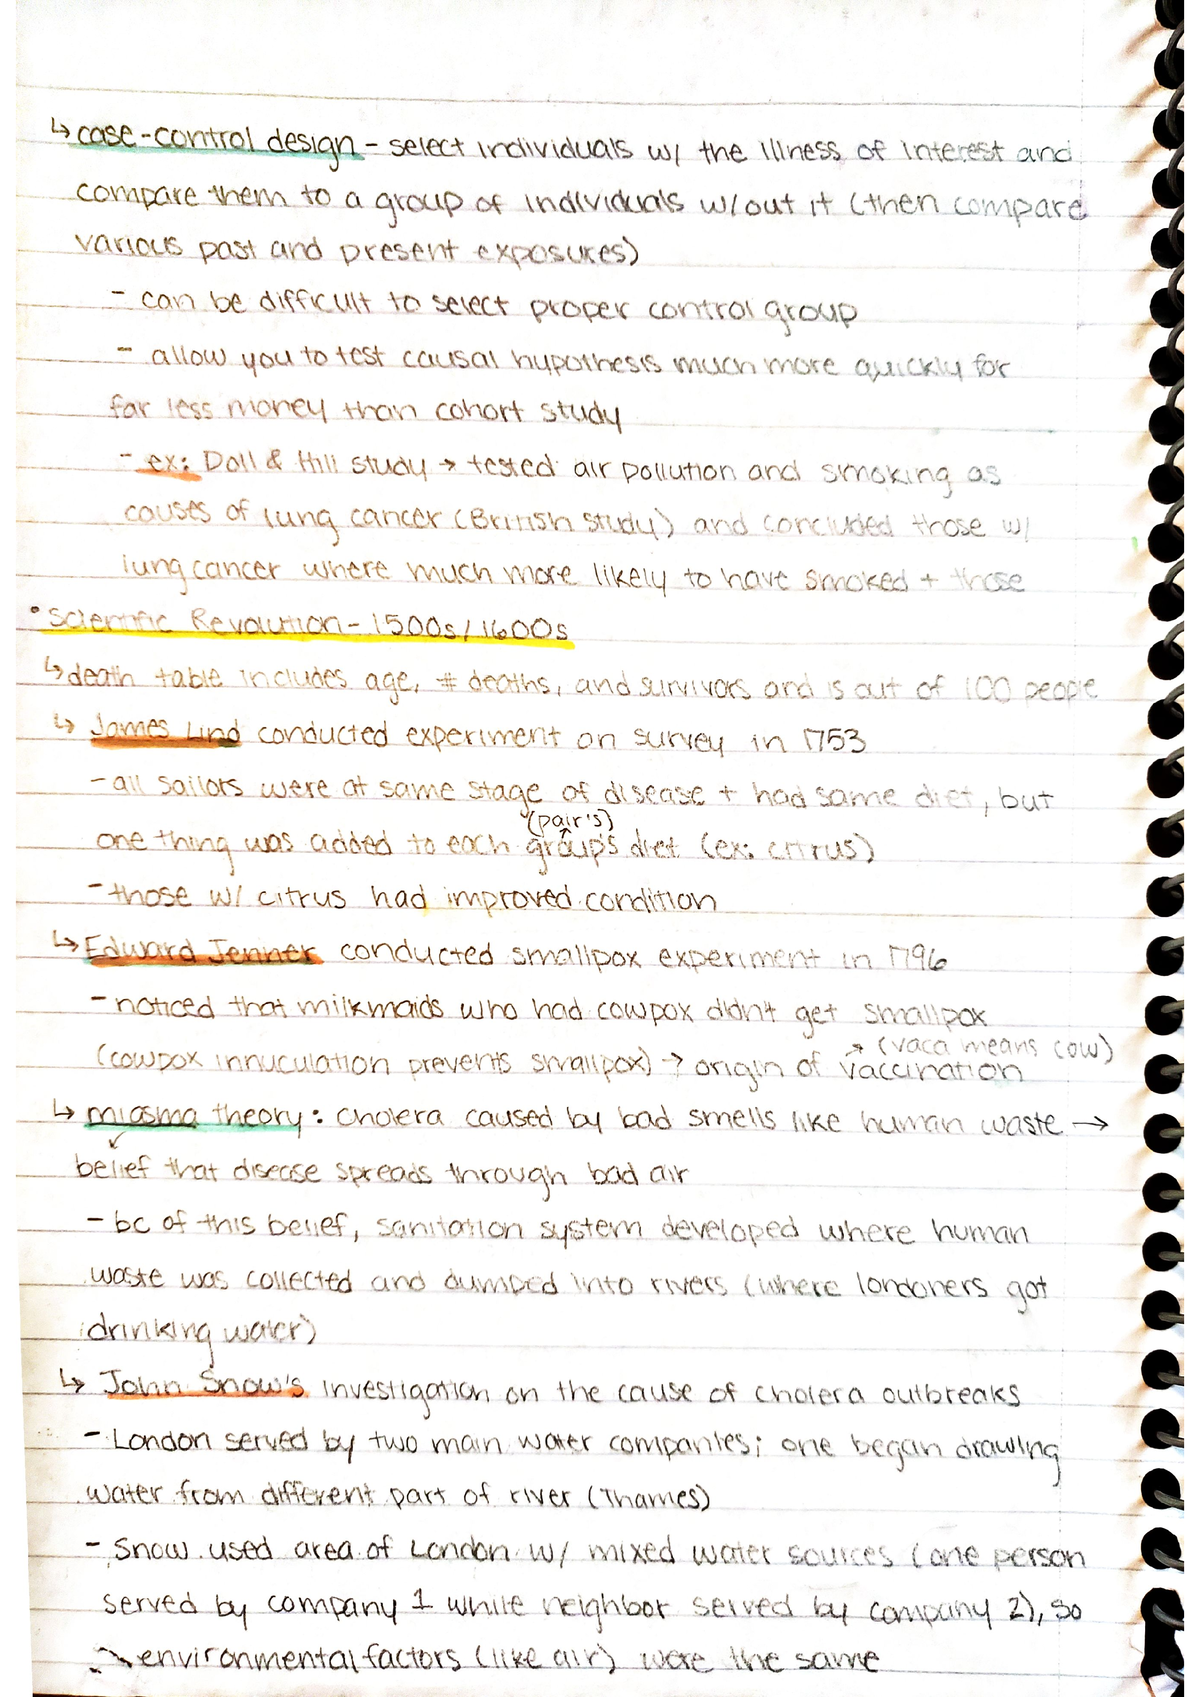 ↳ case-control design - select individuals w/ the illness of interest and
compare them to a group of individuals w/out it (then compare
various past and present exposures)
- can be difficult to select proper control group
- allow you to test causal hypothesis much more quickly for
far less money than cohort study
- ex: Doll & Hill study → tested air pollution and smoking as
causes of lung cancer (British study) and concluded those w/
lung cancer where much more likely to have smoked + those
• Scientific Revolution - 1500s/1600s
↳ death table includes age, # deaths, and survivors and is out of 100 people
↳ James Lind conducted experiment on survey in 1753
- all sailors were at same stage of disease + had same diet, but
(pair's)
one thing was added to each group's diet (ex: citrus)
- those w/ citrus had improved condition
↳ Edward Jenner conducted smallpox experiment in 1796
- noticed that milkmaids who had cowpox didn't get smallpox
↗ (vaca means cow)
(cowpox innuculation prevents smallpox) → origin of vaccination
↳ miasma theory: cholera caused by bad smells like human waste →
belief that disease spreads through bad air
- bc of this belief, sanitation system developed where human
waste was collected and dumped into rivers (where londoners got
drinking water)
↳ John Snow's investigation on the cause of cholera outbreaks
- London served by two main water companies; one began drawing
water from different part of river (Thames)
- Snow used area of London w/ mixed water sources (one person
served by company 1 while neighbor served by company 2), so
environmental factors (like air) were the same